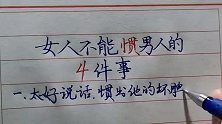 女人不能惯男人的
4件事
一、太好说话,惯出他的坏脾